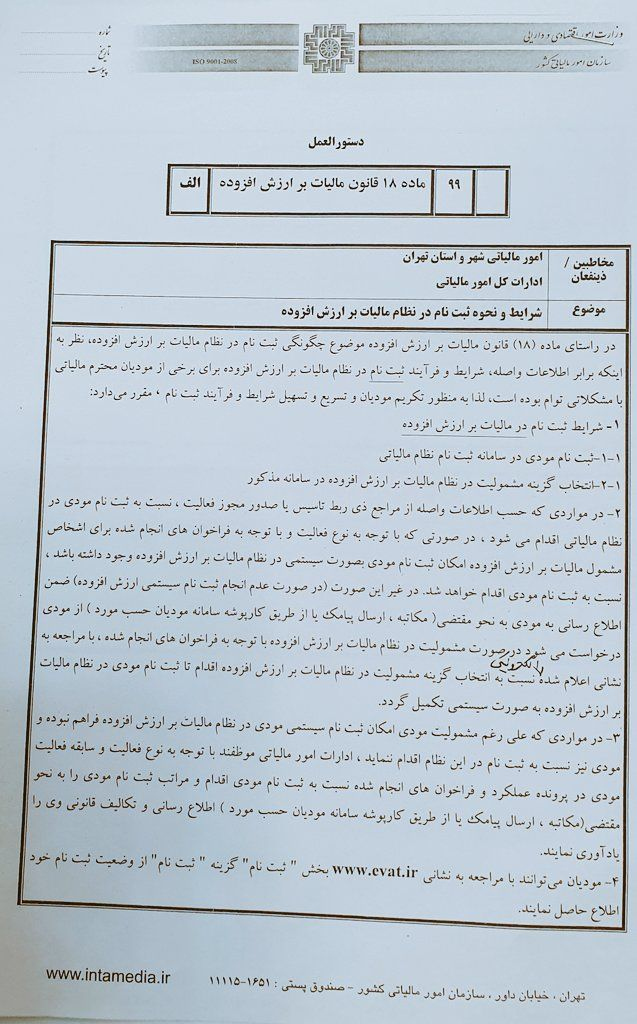 وزارت امور اقتصادی و دارایی
سازمان امور مالیاتی کشور
ISO 9001-2008
شماره
تاریخ
پیوست
دستورالعمل
۹۹ ماده ۱۸ قانون مالیات بر ارزش افزوده الف
مخاطبین / ذینفعان
امور مالیاتی شهر و استان تهران
ادارات کل امور مالیاتی
موضوع شرایط و نحوه ثبت نام در نظام مالیات بر ارزش افزوده
در راستای ماده (۱۸) قانون مالیات بر ارزش افزوده موضوع چگونگی ثبت نام در نظام مالیات بر ارزش افزوده، نظر به
اینکه برابر اطلاعات واصله، شرایط و فرآیند ثبت نام در نظام مالیات بر ارزش افزوده برای برخی از مودیان محترم مالیاتی
با مشکلاتی توام بوده است، لذا به منظور تکریم مودیان و تسریع و تسهیل شرایط و فرآیند ثبت نام ، مقرر می‌دارد:
۱- شرایط ثبت نام در مالیات بر ارزش افزوده
۱-۱-ثبت نام مودی در سامانه ثبت نام نظام مالیاتی
۱-۲-انتخاب گزینه مشمولیت در نظام مالیات بر ارزش افزوده در سامانه مذکور
۲- در مواردی که حسب اطلاعات واصله از مراجع ذی ربط تاسیس یا صدور مجوز فعالیت ، نسبت به ثبت نام مودی در
نظام مالیاتی اقدام می شود ، در صورتی که با توجه به نوع فعالیت و با توجه به فراخوان های انجام شده برای اشخاص
مشمول مالیات بر ارزش افزوده امکان ثبت نام مودی بصورت سیستمی در نظام مالیات بر ارزش افزوده وجود داشته باشد ،
نسبت به ثبت نام مودی اقدام خواهد شد. در غیر این صورت (در صورت عدم انجام ثبت نام سیستمی ارزش افزوده) ضمن
اطلاع رسانی به مودی به نحو مقتضی( مکاتبه ، ارسال پیامک یا از طریق کارپوشه سامانه مودیان حسب مورد ) از مودی
درخواست می شود در صورت مشمولیت در نظام مالیات بر ارزش افزوده با توجه به فراخوان های انجام شده ، با مراجعه به
نشانی اعلام شده نسبت به انتخاب گزینه مشمولیت در نظام مالیات بر ارزش افزوده اقدام تا ثبت نام مودی در نظام مالیات
بر ارزش افزوده به صورت سیستمی تکمیل گردد.
۳- در مواردی که علی رغم مشمولیت مودی امکان ثبت نام سیستمی مودی در نظام مالیات بر ارزش افزوده فراهم نبوده و
مودی نیز نسبت به ثبت نام در این نظام اقدام ننماید ، ادارات امور مالیاتی موظفند با توجه به نوع فعالیت و سابقه فعالیت
مودی در پرونده عملکرد و فراخوان های انجام شده نسبت به ثبت نام مودی اقدام و مراتب ثبت نام مودی را به نحو
مقتضی(مکاتبه ، ارسال پیامک یا از طریق کارپوشه سامانه مودیان حسب مورد ) اطلاع رسانی و تکالیف قانونی وی را
یادآوری نمایند.
۴- مودیان می‌توانند با مراجعه به نشانی www.evat.ir بخش " ثبت نام" گزینه " ثبت نام" از وضعیت ثبت نام خود
اطلاع حاصل نمایند.
تهران ، خیابان داور ، سازمان امور مالیاتی کشور - صندوق پستی : ۱۶۵۱-۱۱۱۱۵
www.intamedia.ir